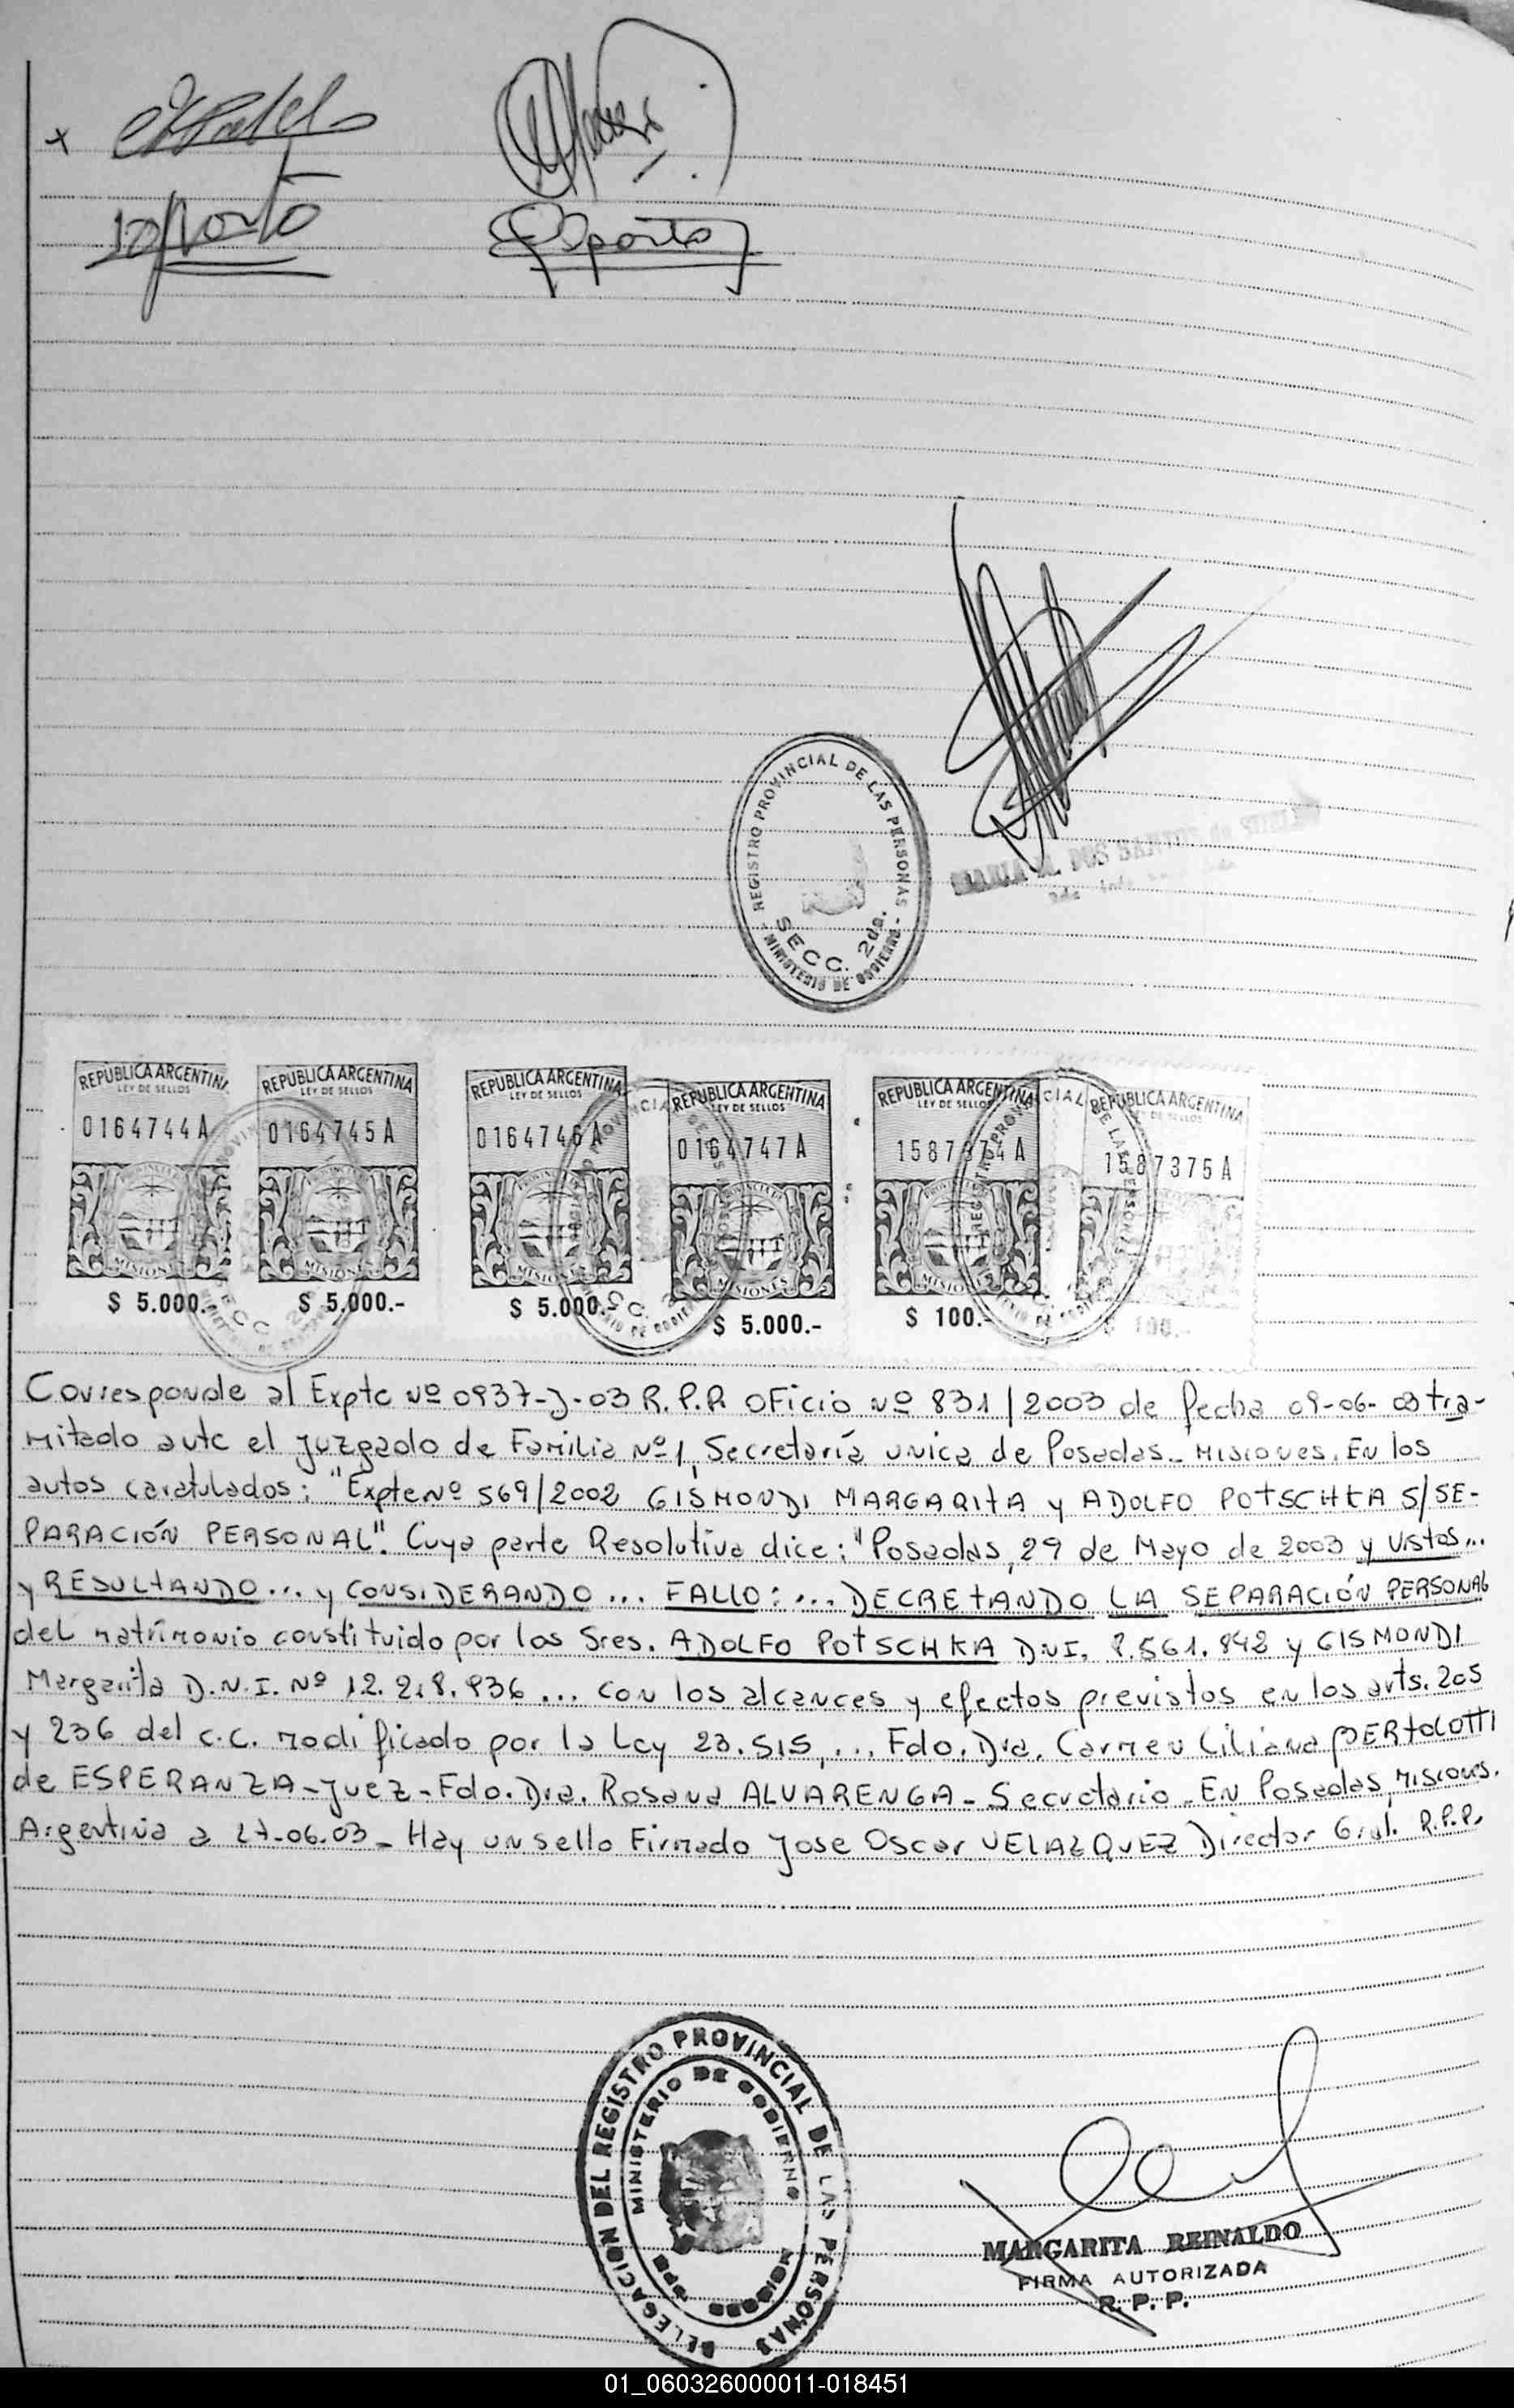 REGISTRO PROVINCIAL DE LAS PERSONAS
SECC. 2da.
MINISTERIO DE GOBIERNO
MARIA M. DOS SANTOS de
REPUBLICA ARGENTINA
LEY DE SELLOS
0164744A
MISIONES
$ 5.000.-
REPUBLICA ARGENTINA
LEY DE SELLOS
0164745A
MISIONES
$ 5.000.-
REPUBLICA ARGENTINA
LEY DE SELLOS
0164746A
MISIONES
$ 5.000.-
REPUBLICA ARGENTINA
LEY DE SELLOS
0164747A
MISIONES
$ 5.000.-
REPUBLICA ARGENTINA
LEY DE SELLOS
1587374A
MISIONES
$ 100.-
REPUBLICA ARGENTINA
LEY DE SELLOS
1587375A
$ 100.-
Corresponde al Expte Nº 0937-J-03 R.P.P. OFicio Nº 831/2003 de fecha 09-06-03 tra-
mitado ante el Juzgado de Familia Nº 1, Secretaría unica de Posadas - Misiones. En los
autos caratulados: "Expte Nº 569/2002 GISMONDI MARGARITA y ADOLFO POTSCHKA S/SE-
PARACIÓN PERSONAL". Cuya parte Resolutiva dice: "Posadas, 29 de Mayo de 2003 y Vistos...
y RESULTANDO... y CONSIDERANDO... FALLO:... DECRETANDO LA SEPARACIÓN PERSONAL
del matrimonio constituido por los Sres. ADOLFO POTSCHKA D.N.I. 8.561.842 y GISMONDI
Margarita D.N.I. Nº 12.218.936... con los alcances y efectos previstos en los arts. 205
y 236 del c.c. modificado por la Ley 23.515,... Fdo. Dra. Carmen Liliana BERTOLOTTI
de ESPERANZA - Juez - Fdo. Dra. Rosana ALVARENGA - Secretario - En Posadas, Misiones.
Argentina a 27-06-03 - Hay un sello Firmado Jose Oscar VELAZQUEZ Director Gral. R.P.P.
DELEGACION DEL REGISTRO PROVINCIAL DE LAS PERSONAS
MINISTERIO DE GOBIERNO
MISIONES
MARGARITA REINALDO
FIRMA AUTORIZADA
R. P. P.
01_060326000011-018451